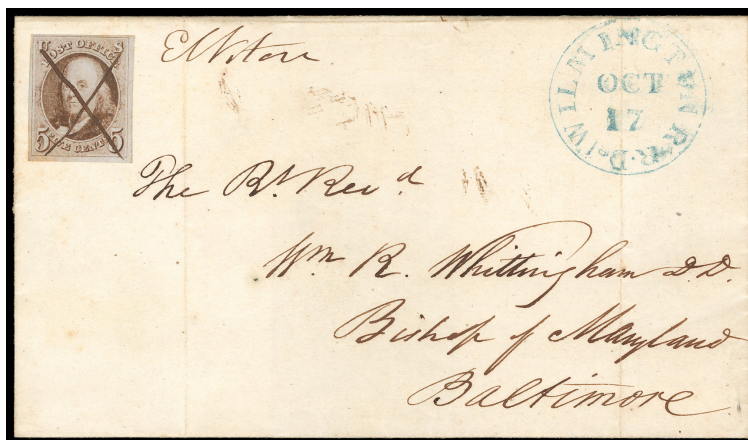 U S
POST OFFICE
5 FIVE CENTS 5
Elkton
WILMINGTON R.R. Del
OCT
17
The Rt. Revd.
Wm R. Whittingham D.D.
Bishop of Maryland
Baltimore